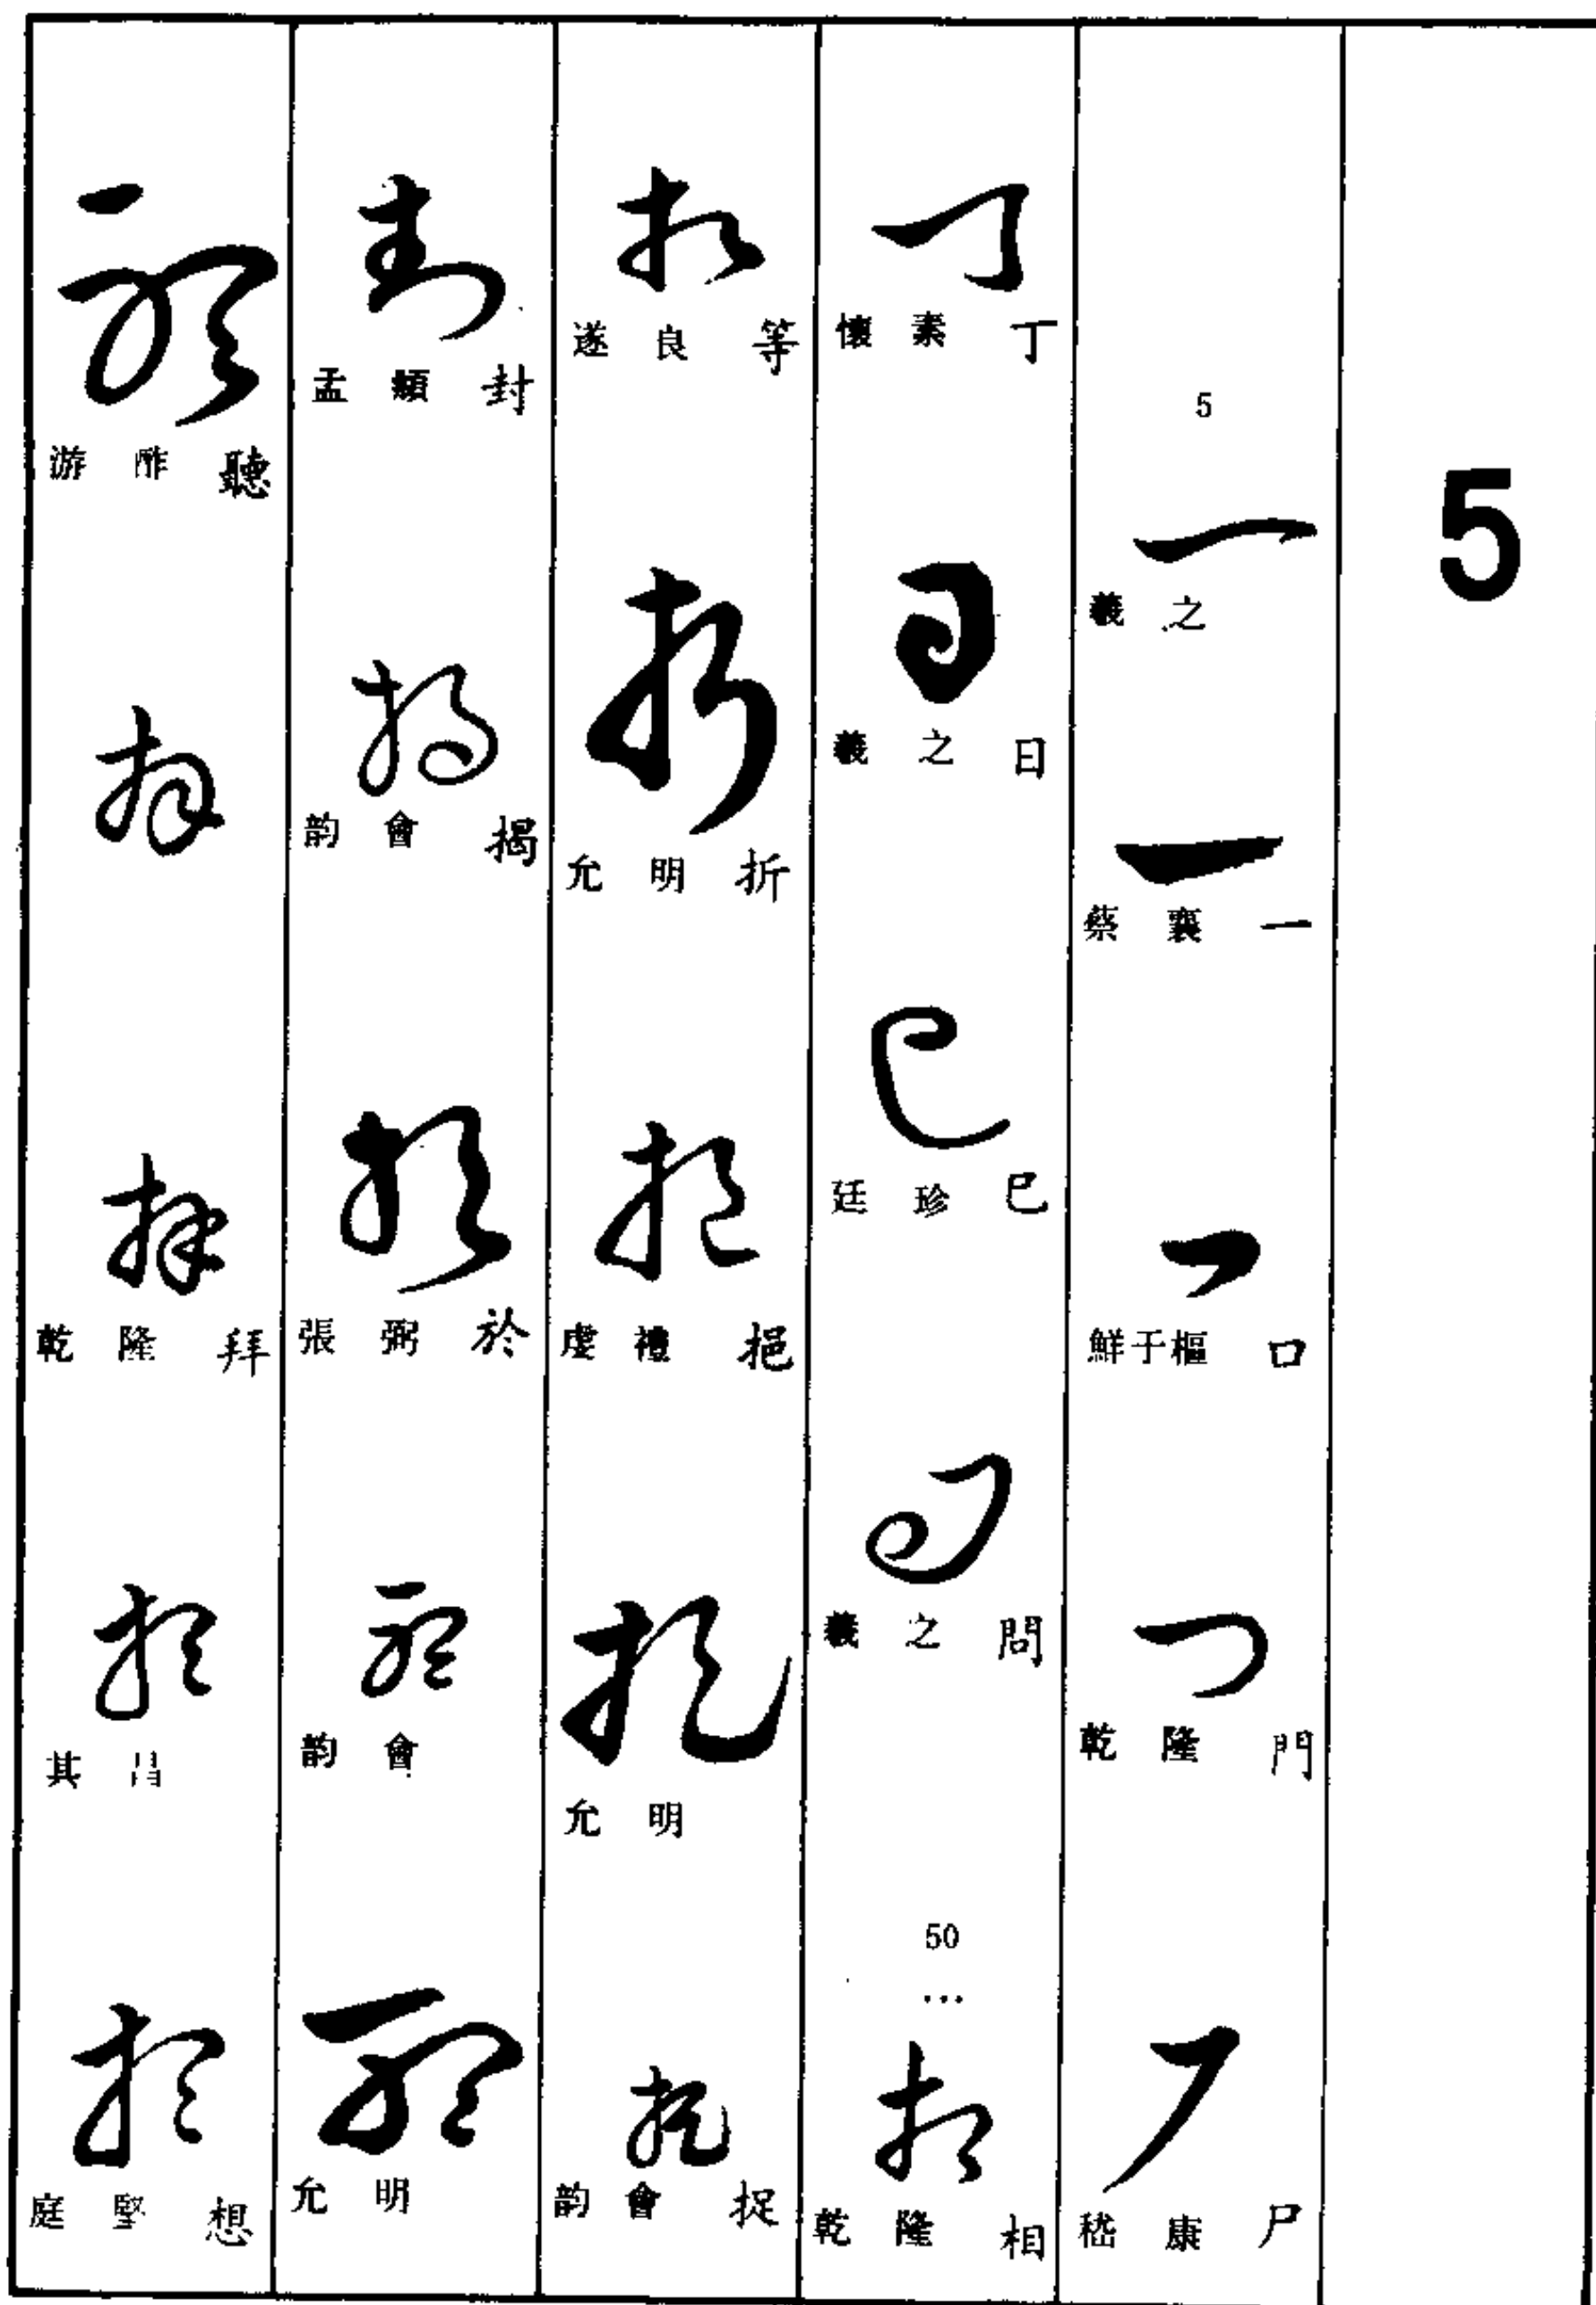 5
5
羲之
蔡襄 一
鮮于樞 口
乾隆 門
嵇康 尸
懷素 丁
羲之 日
廷珍 巳
羲之 問
50
…
乾隆 相
遂良 等
允明 折
虔禮 挹
允明
韵會 捉
孟頫 封
韵會 揭
張弼 於
韵會
允明
游酢 聽
乾隆 拜
其昌
庭堅 想